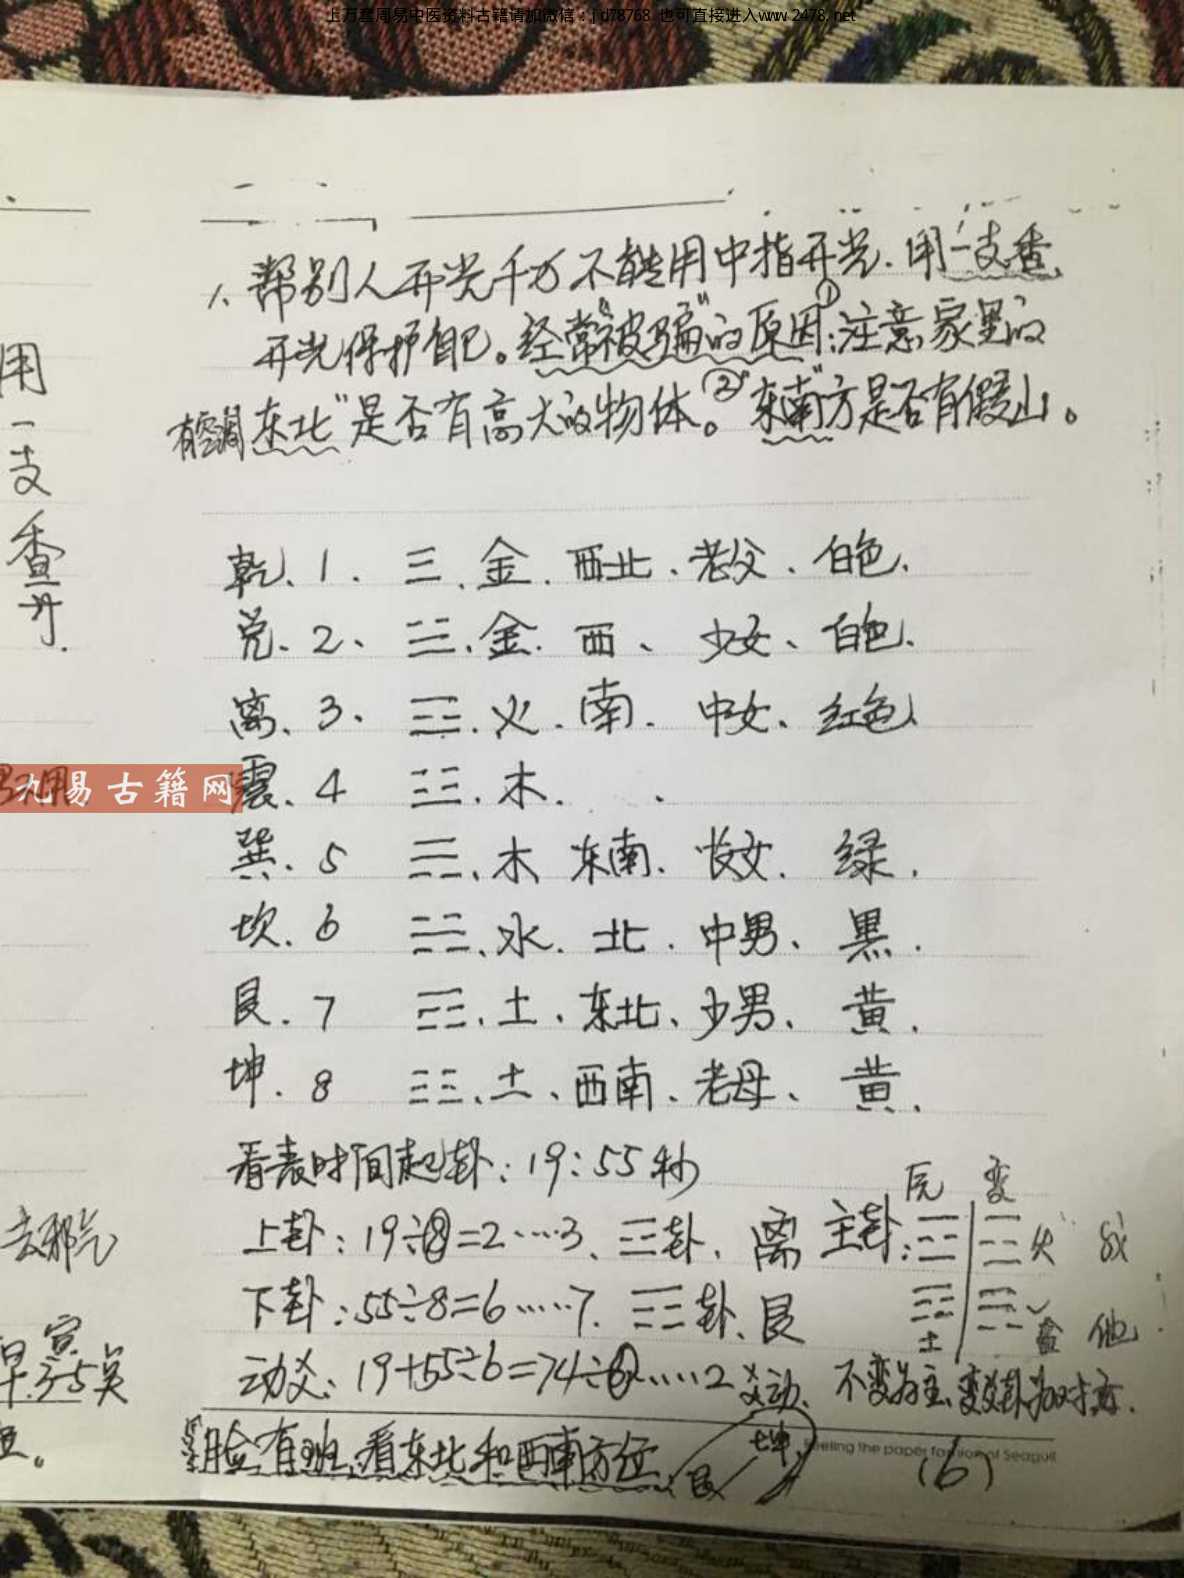 上万套周易中医资料古籍请加微信：jd78768 也可直接进入www.2478.net
1、帮别人开光千万不能用中指开光.用一支香
开光保护自己。经常"被骗"的原因:①注意家里的
有空调 东北"是否有高大的物体。②"东南"方是否有假山。
用
一
支
香
开.
乾、1、☰、金、西北、老父、白色、
兑、2、☱、金、西、少女、白色、
离、3、☲、火、南、中女、红色、
九易古籍网
震、4 ☳、木、
巽、5 ☴、木 东南、长女、绿、
坎、6 ☵、水、北、中男、黑、
艮、7 ☶、土、东北、少男、黄、
坤、8 ☷、土、西南、老母、黄、
看表时间起卦:19:55秒
上卦:19÷8=2……3、☲卦、离 主卦:
变
火
下卦:55÷8=6……7、☶卦、艮
土
他
动爻:19+55÷6=74÷6……2爻动、不变为主、变
去邪气
寅
早3-5
脸有斑、看东北和西南方位、艮 坤
Feeling the paper fashion of Seagull
(6)